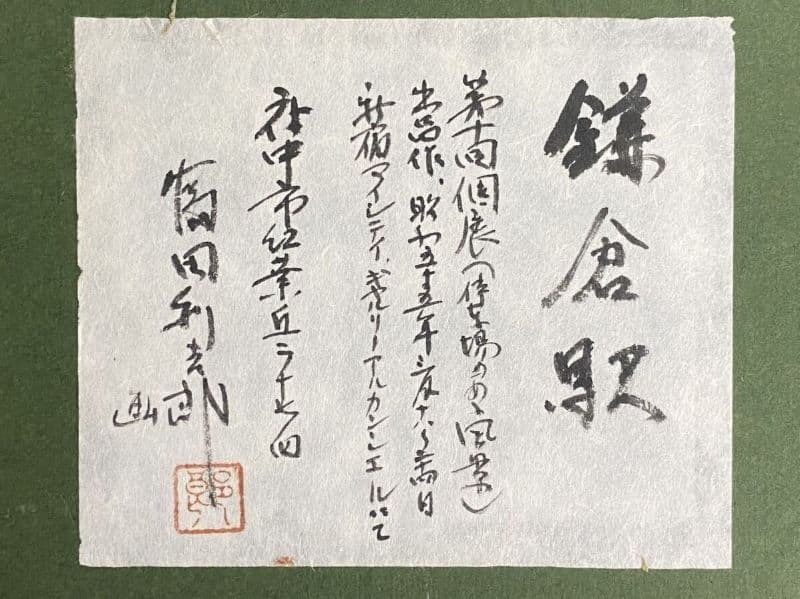 鎌倉駅
第十回個展(停車場のある風景)
出品作、昭和五十五年三月十八〜二十四日
新宿アイシティ、ギャルリーアルカンシエルにて
府中市紅葉丘二ノ十七ノ四
富田利吉郎
画